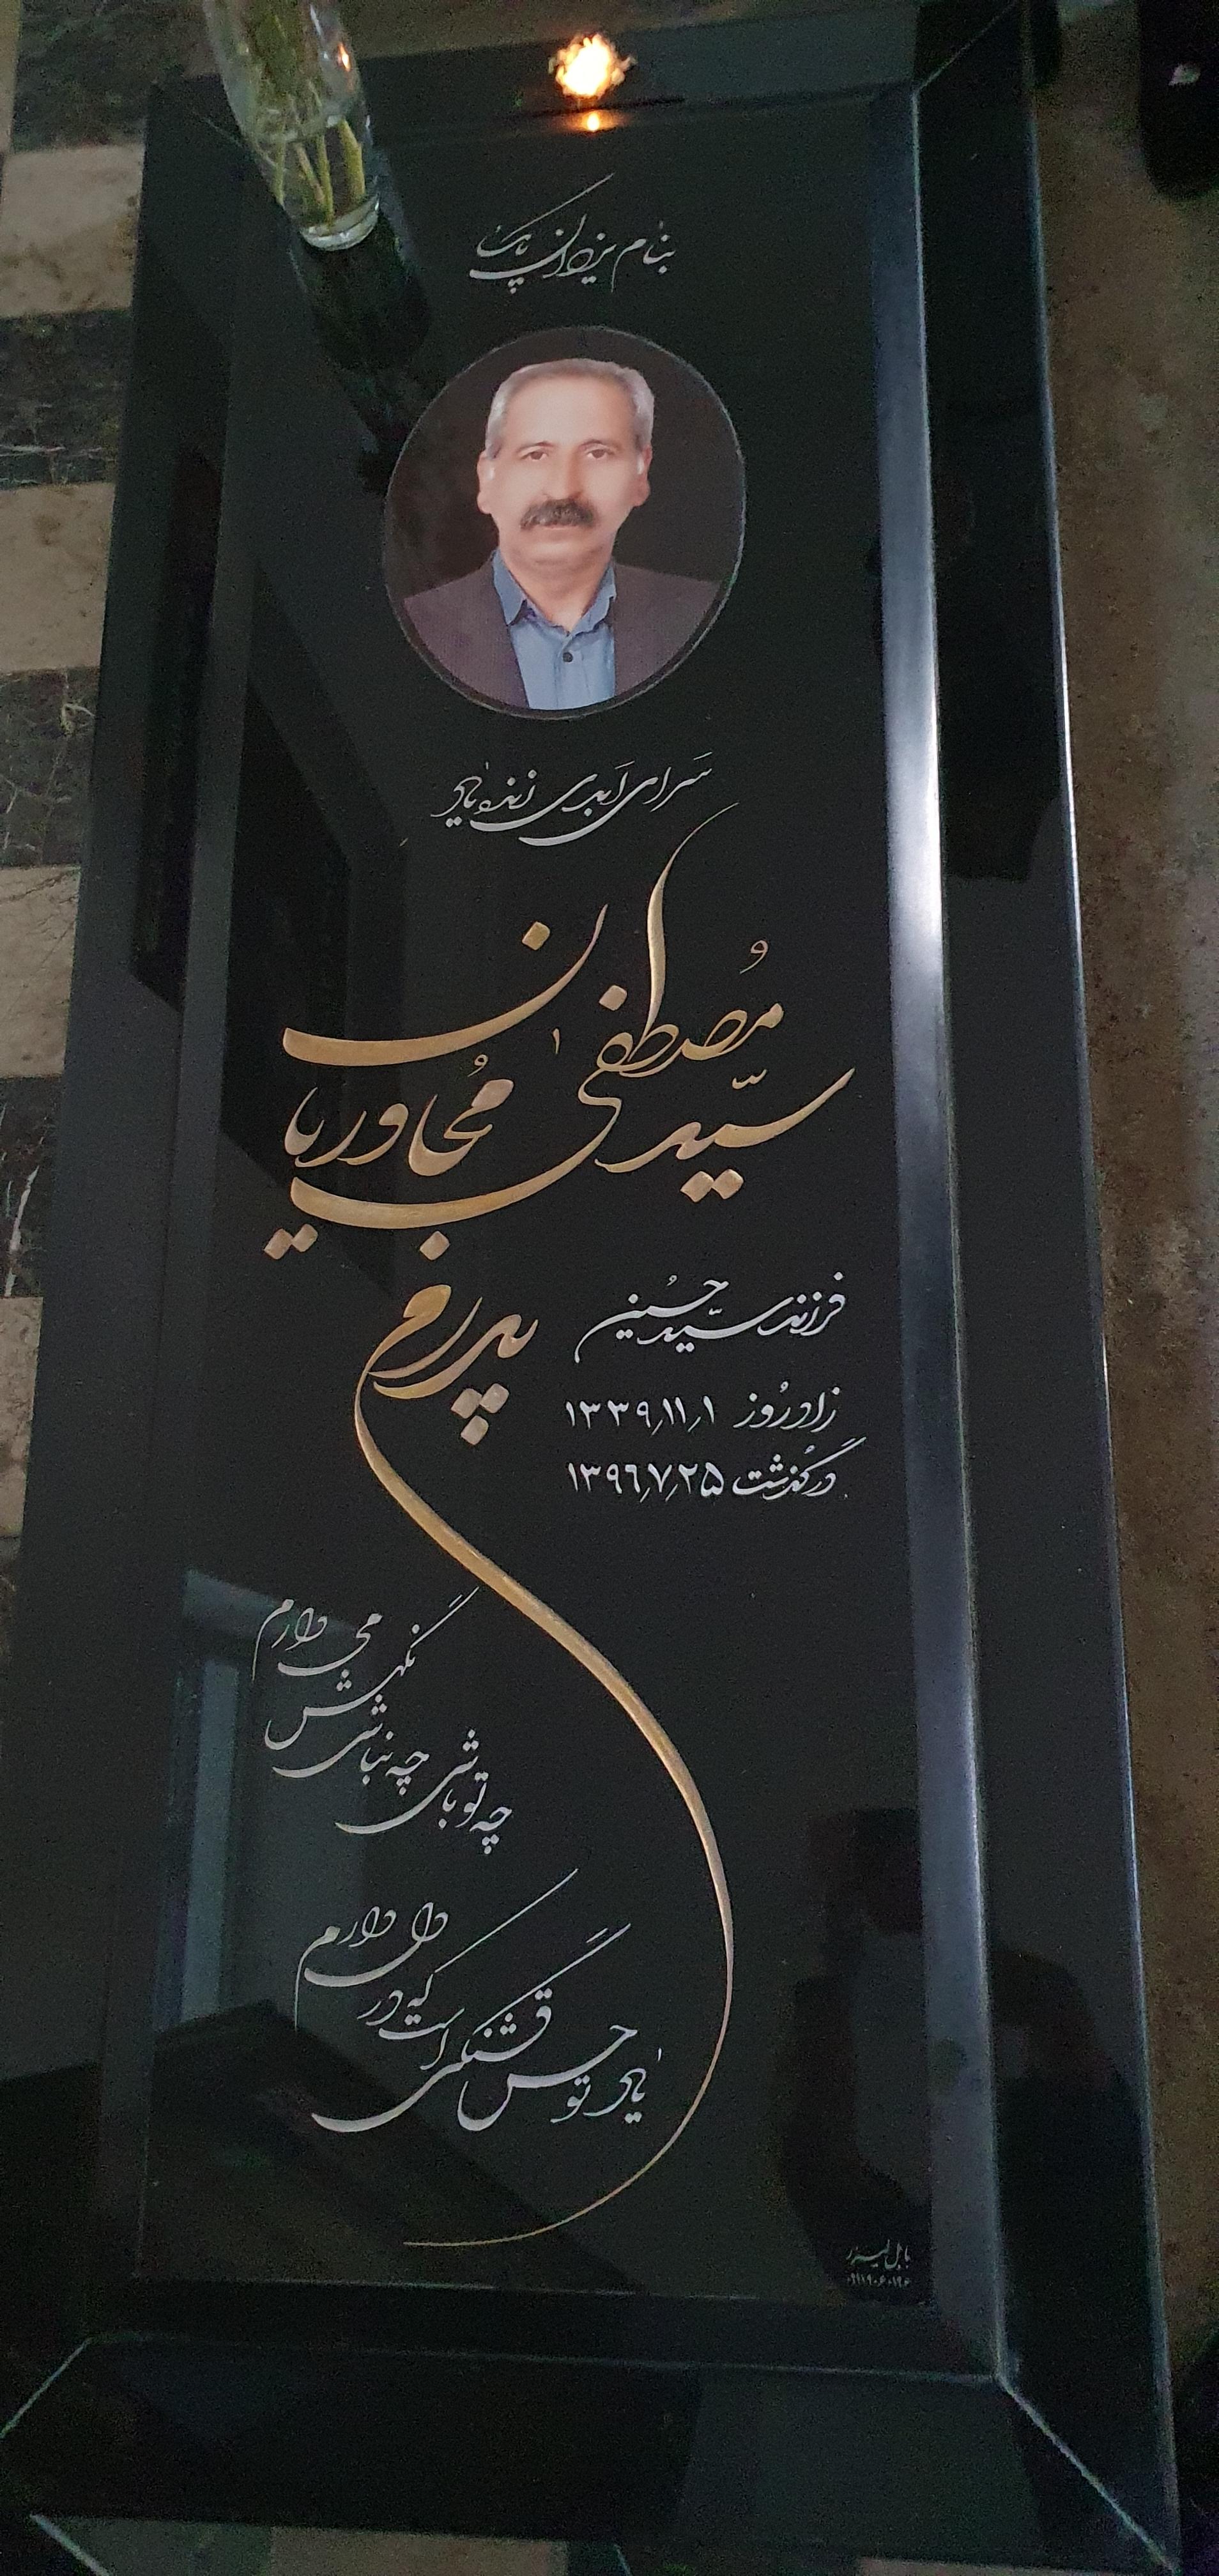 بنام یزدان پاک
سرای ابدی زنده یاد
سیّد مُصطفی مُجاوریان
فرزند سیّد حُسین
زادروُز ۱۳۳۹٫۱۱٫۱
درگذشت ۱۳۹۶٫۷٫۲۵
پدرم
چه تو باشی چه نباشی
نگهش می دارم
یاد تو حس قشنگی است
که در دل دارم
بابل لیزر